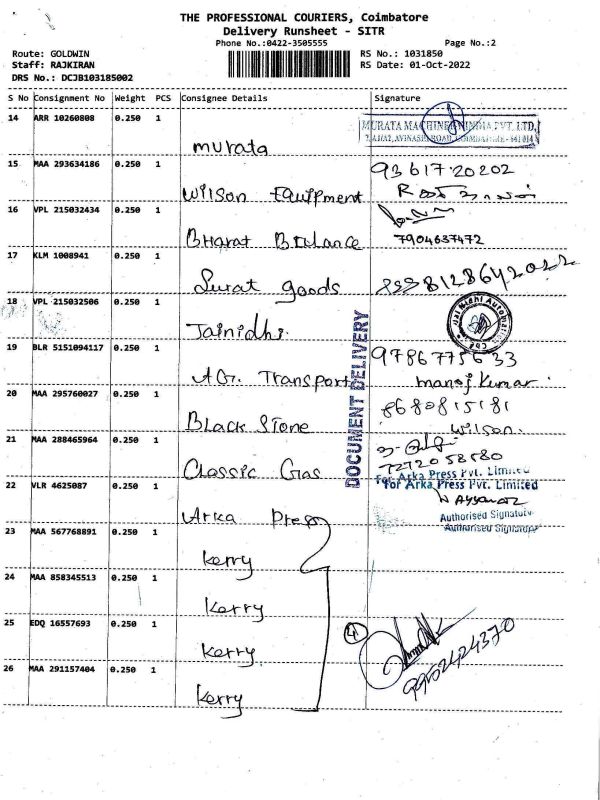 THE PROFESSIONAL COURIERS, Coimbatore
Delivery Runsheet - SITR
Phone No.:0422-3505555 Page No.:2
Route: GOLDWIN RS No.: 1031850
Staff: RAJKIRAN RS Date: 01-Oct-2022
DRS No.: DCJB103185002
S No Consignment No Weight PCS Consignee Details Signature
14 ARR 10260808 0.250 1
MURATA MACHINERY INDIA PVT. LTD.
murata
15 MAA 293634186 0.250 1 93617 20202
Wilson Equipment
16 VPL 215032434 0.250 1
Bharat Bilance 7904637472
17 KLM 1008941 0.250 1
Surat goods 8128642022
18 VPL 215032506 0.250 1
Jai Nidhi Automation
Jainidhi
DOCUMENT DELIVERY
19 BLR 5151094117 0.250 1 9786775633
AG. Transport Manoj Kumar
20 MAA 295760027 0.250 1 8680815181
Black Stone Wilson
21 MAA 288465964 0.250 1
Classic Gas 7272058580
For Arka Press Pvt. Limited
22 VLR 4625087 0.250 1 For Arka Press Pvt. Limited
Arka Press Authorised Signatory
Authorised Signatory
23 MAA 567768891 0.250 1
Kerry
24 MAA 858345513 0.250 1
Kerry
25 EDQ 16557693 0.250 1 4
Kerry 9952424370
26 MAA 291157404 0.250 1
Kerry